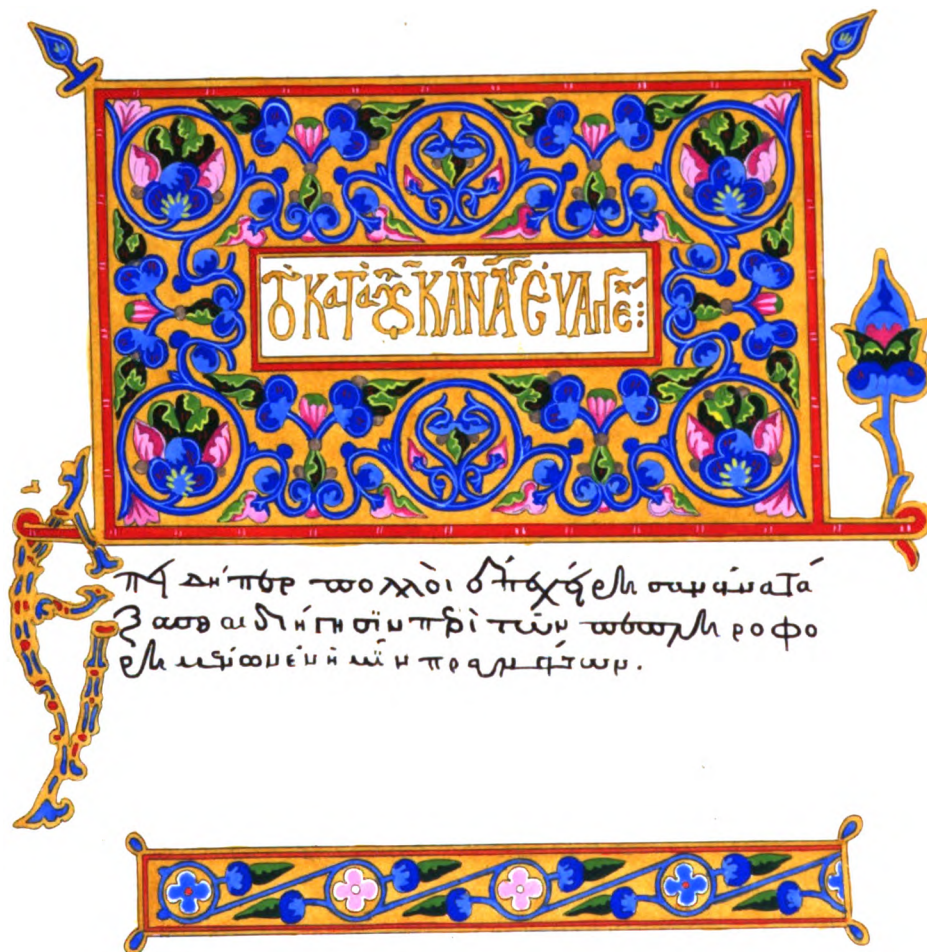 Τὸ Κατὰ ΛȣΚΑΝ Ἅγ ΕΥΑΓΓΕ
Ἐπειδήπερ πολλοὶ ἐπεχείρησαν ἀνατά
ξασθαι διήγησϊν περὶ τῶν πεπληροφο
ρημένων ἐν ἡμῖν πραγμάτων.